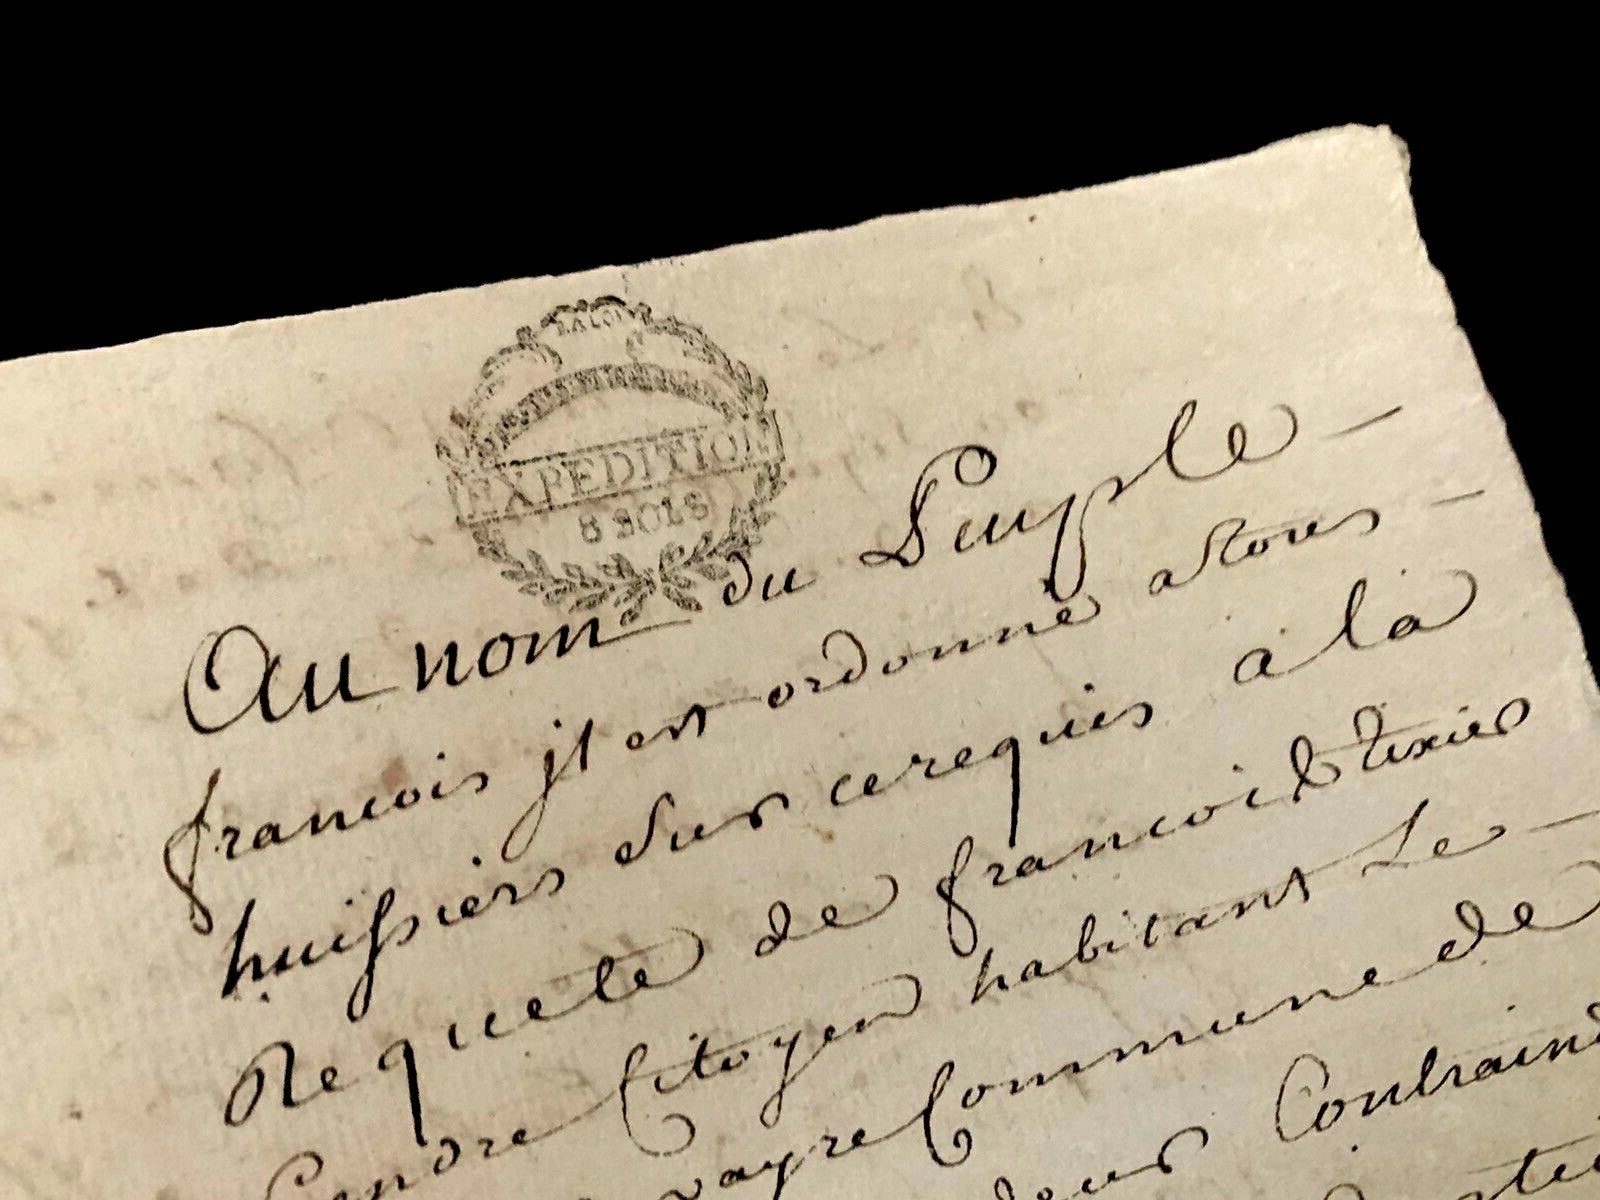 LA LOI
EXPEDITION
8 SOLS
Au nom du Peuple
francois jl est ordonné a tous
huissiers sur ce requis a la
Requete de francois Texier
Gendre Citoyen habitant Le
Commune de
Contraind